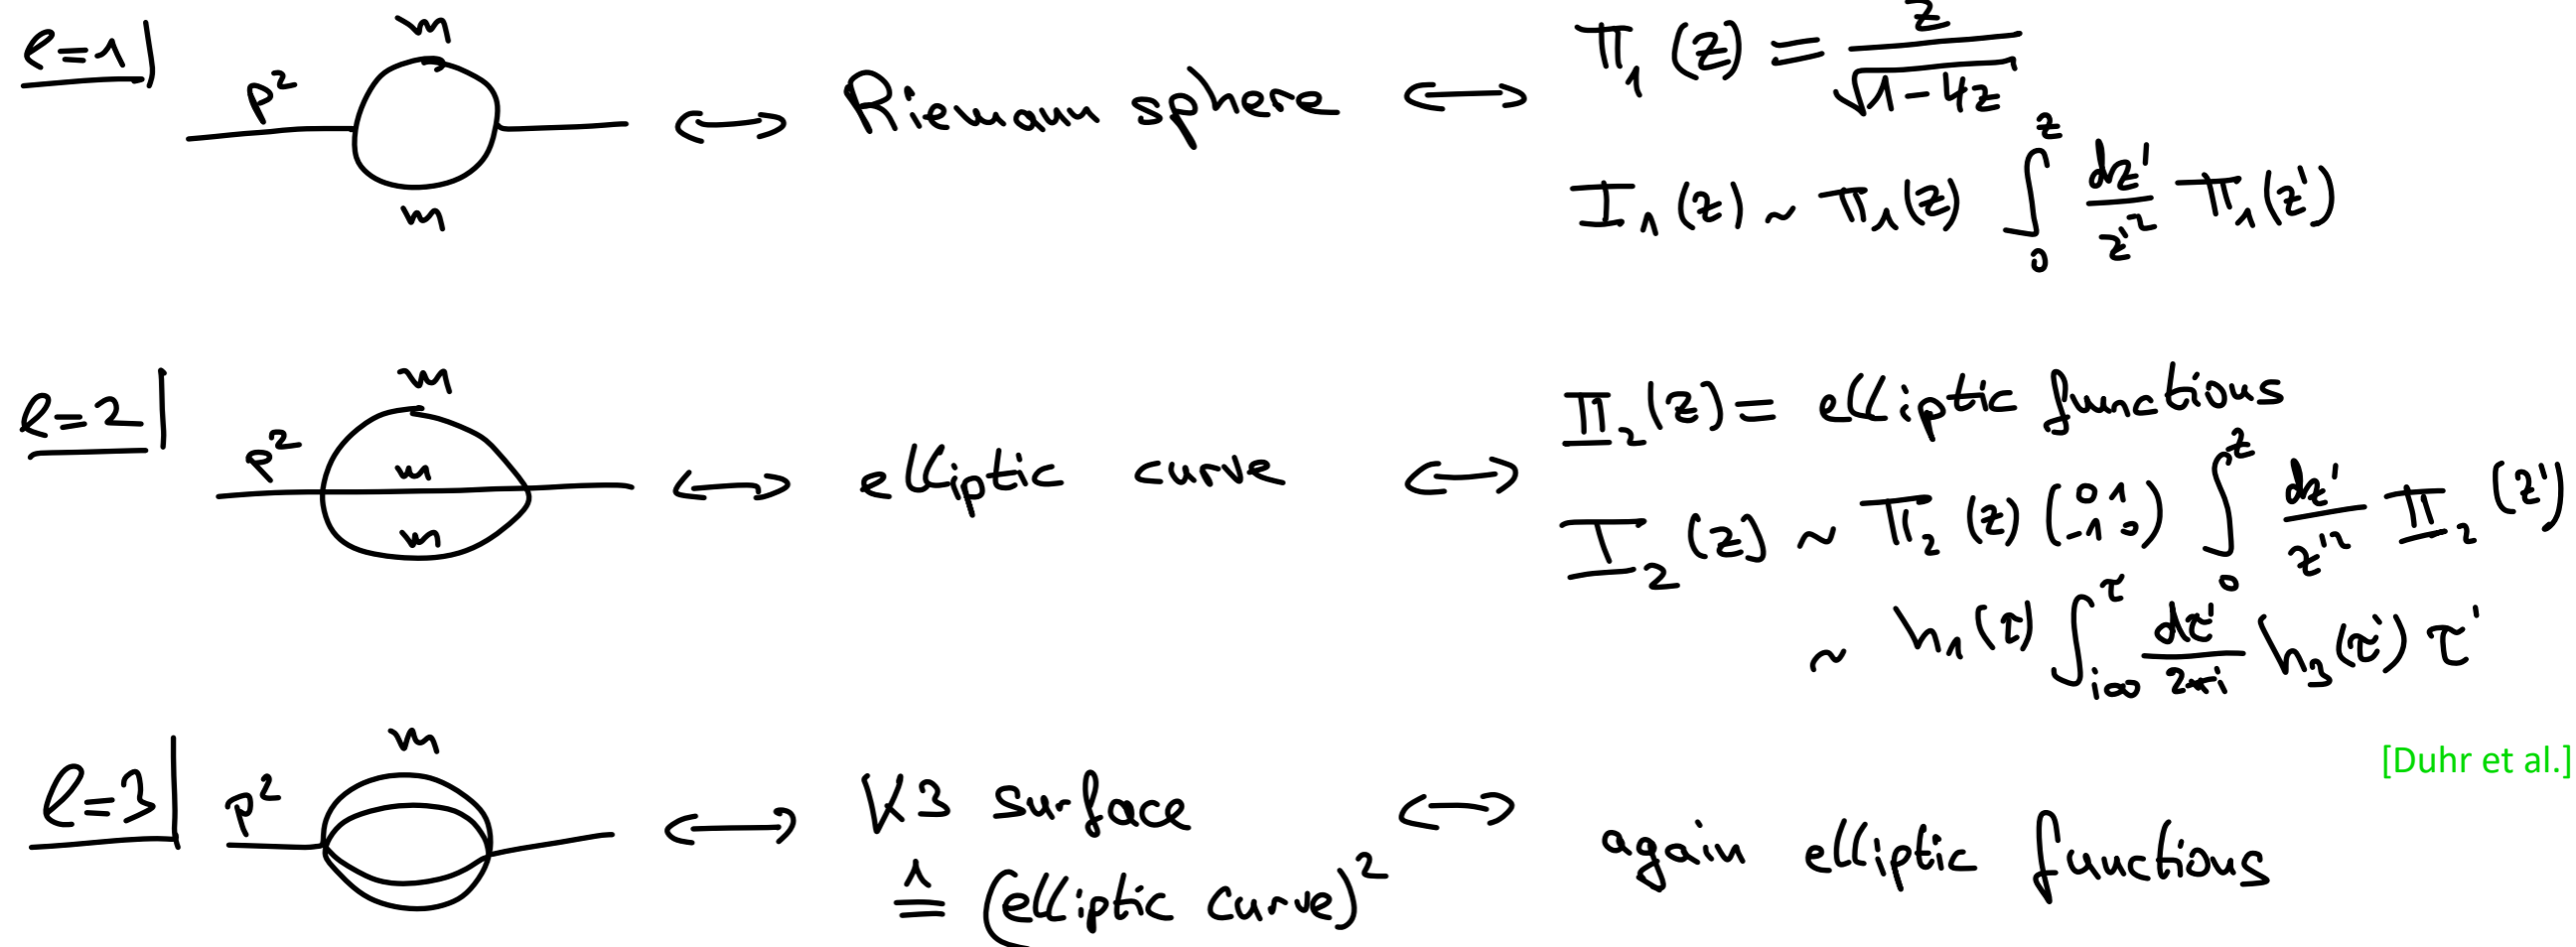 l=1
m
p²
m
⟷ Riemann sphere ⟷ Π₁(z) = z/√(1-4z)
I₁(z) ~ Π₁(z) ∫₀^z dz'/z'² Π₁(z')
l=2
m
p²
m
m
⟷ elliptic curve ⟷ Π₂(z) = elliptic functions
I₂(z) ~ Π₂(z) (0 1 -1 0) ∫₀^z dz'/z'² Π₂(z')
~ h₁(τ) ∫_{i∞}^τ dτ'/2πi h₃(τ') τ'
[Duhr et al.]
l=3
m
p²
⟷ K3 surface ⟷ again elliptic functions
≙ (elliptic curve)²